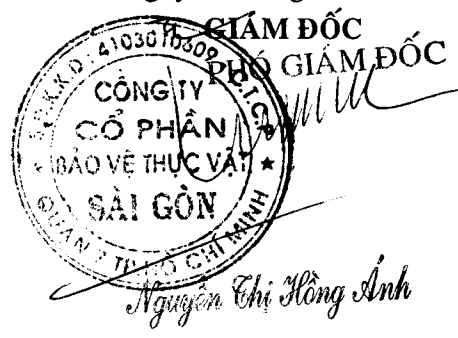 GIÁM ĐỐC
PHÓ GIÁM ĐỐC
S.Đ.K.K.D: 4103010609 - C.T.C.P
CÔNG TY
CỔ PHẦN
BẢO VỆ THỰC VẬT
SÀI GÒN
QUẬN 7 TP. HỒ CHÍ MINH
Nguyễn Thị Hồng Ánh